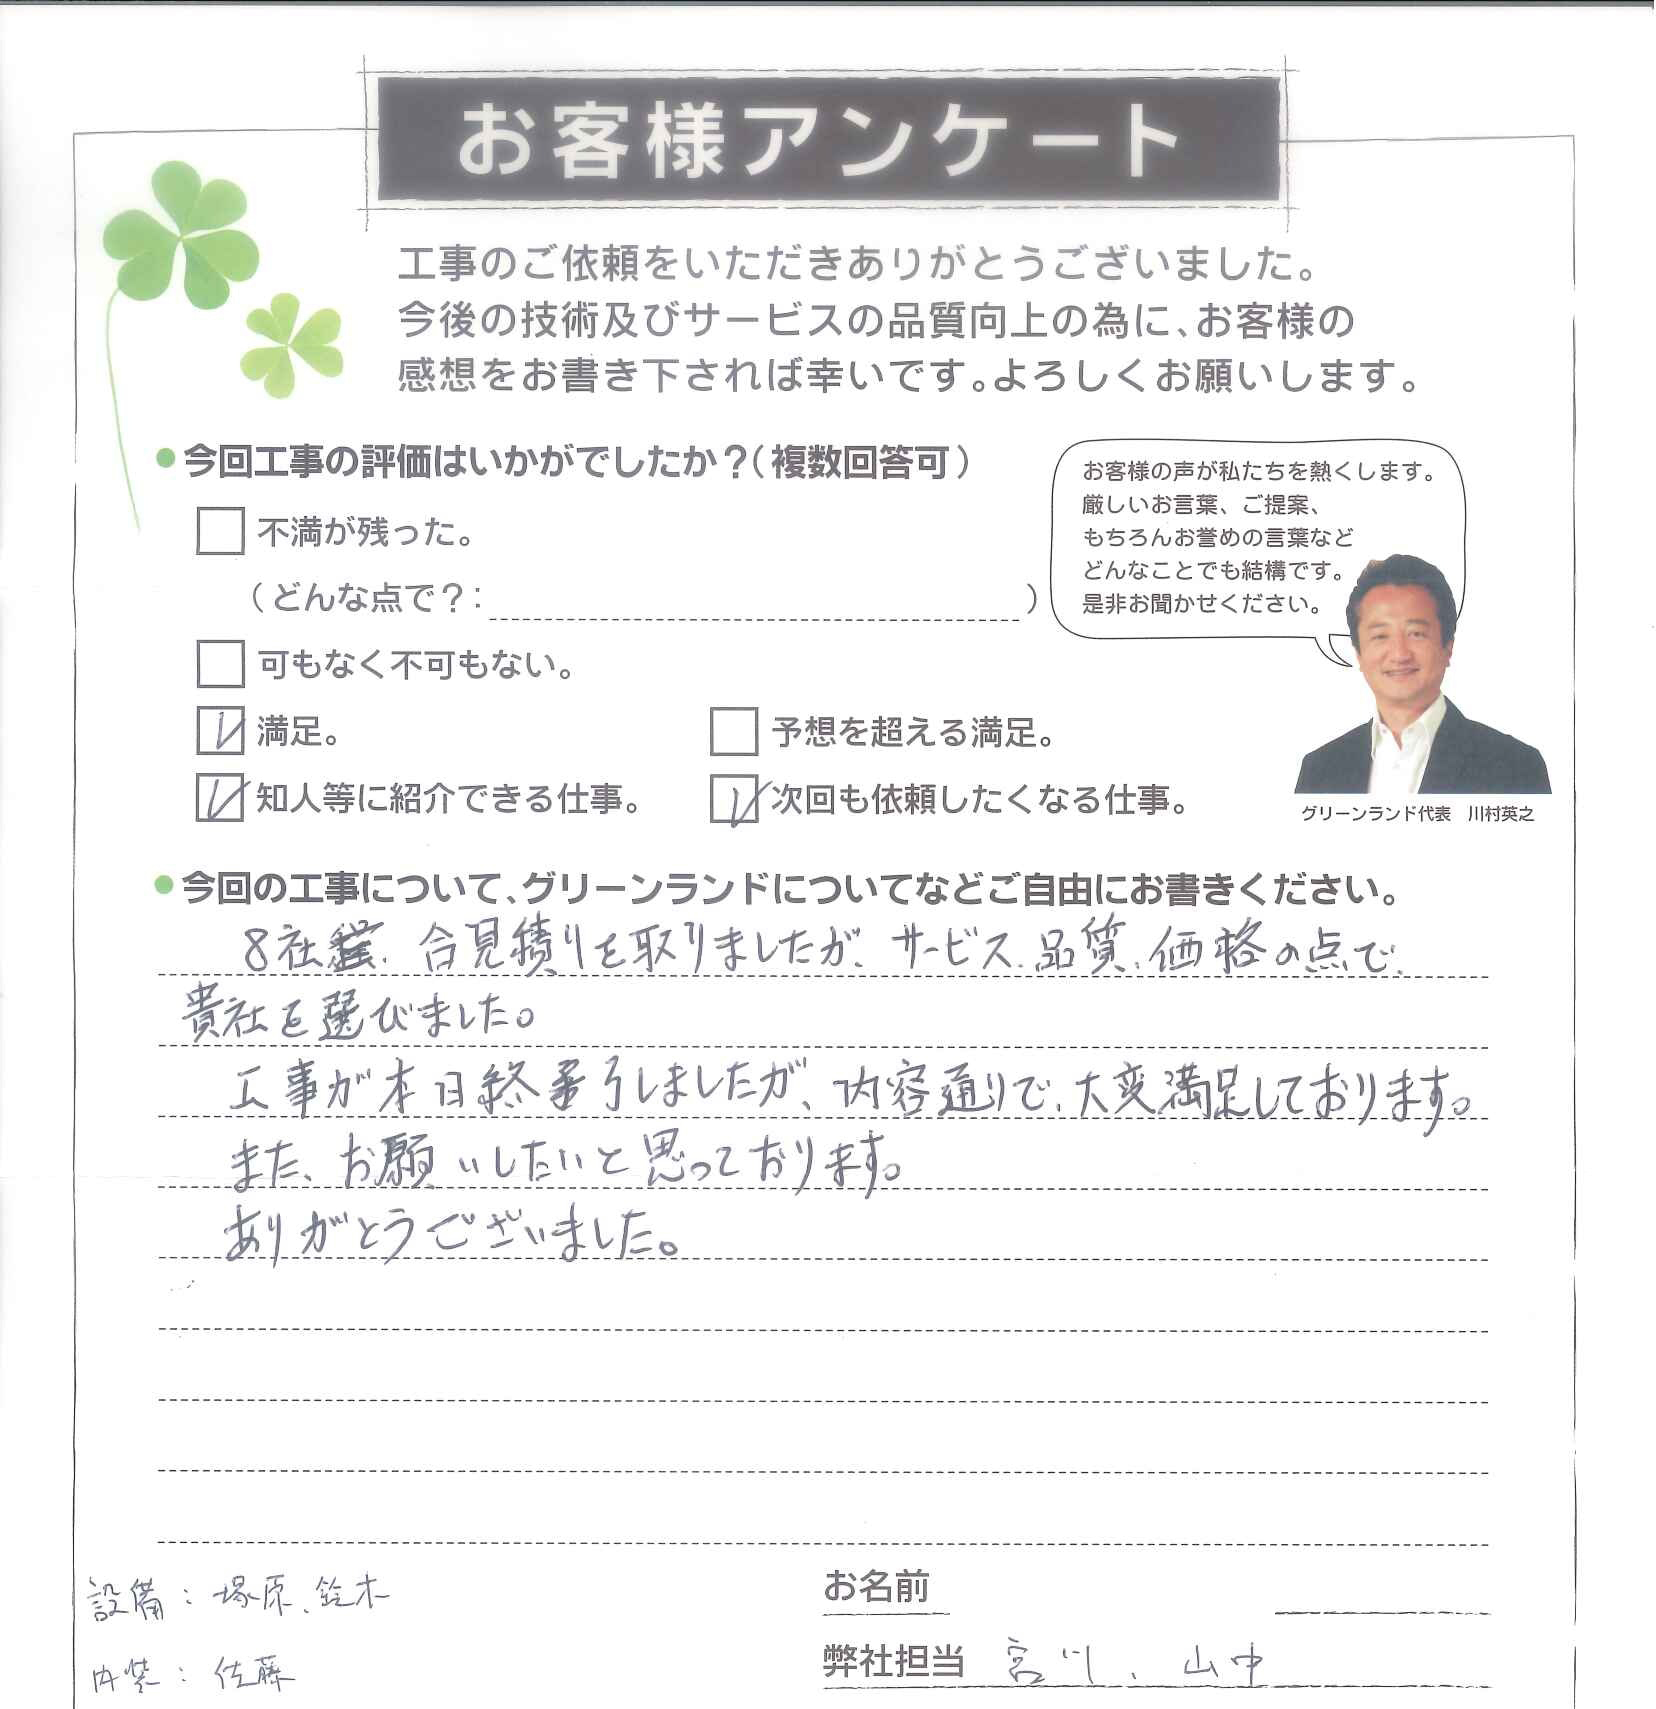 お客様アンケート
工事のご依頼をいただきありがとうございました。
今後の技術及びサービスの品質向上の為に、お客様の
感想をお書き下されば幸いです。よろしくお願いします。
●今回工事の評価はいかがでしたか？（複数回答可）
不満が残った。
（どんな点で？：　）
可もなく不可もない。
満足。
予想を超える満足。
知人等に紹介できる仕事。
次回も依頼したくなる仕事。
お客様の声が私たちを熱くします。
厳しいお言葉、ご提案、
もちろんお誉めの言葉など
どんなことでも結構です。
是非お聞かせください。
グリーンランド代表　川村英之
●今回の工事について、グリーンランドについてなどご自由にお書きください。
8社 合見積りを取りましたが、サービス、品質、価格の点で、
貴社を選びました。
工事が本日終了しましたが、内容通りで、大変満足しております。
また、お願いしたいと思っております。
ありがとうございました。
設備：塚原、鈴木
内装：佐藤
お名前
弊社担当 宮川、山中